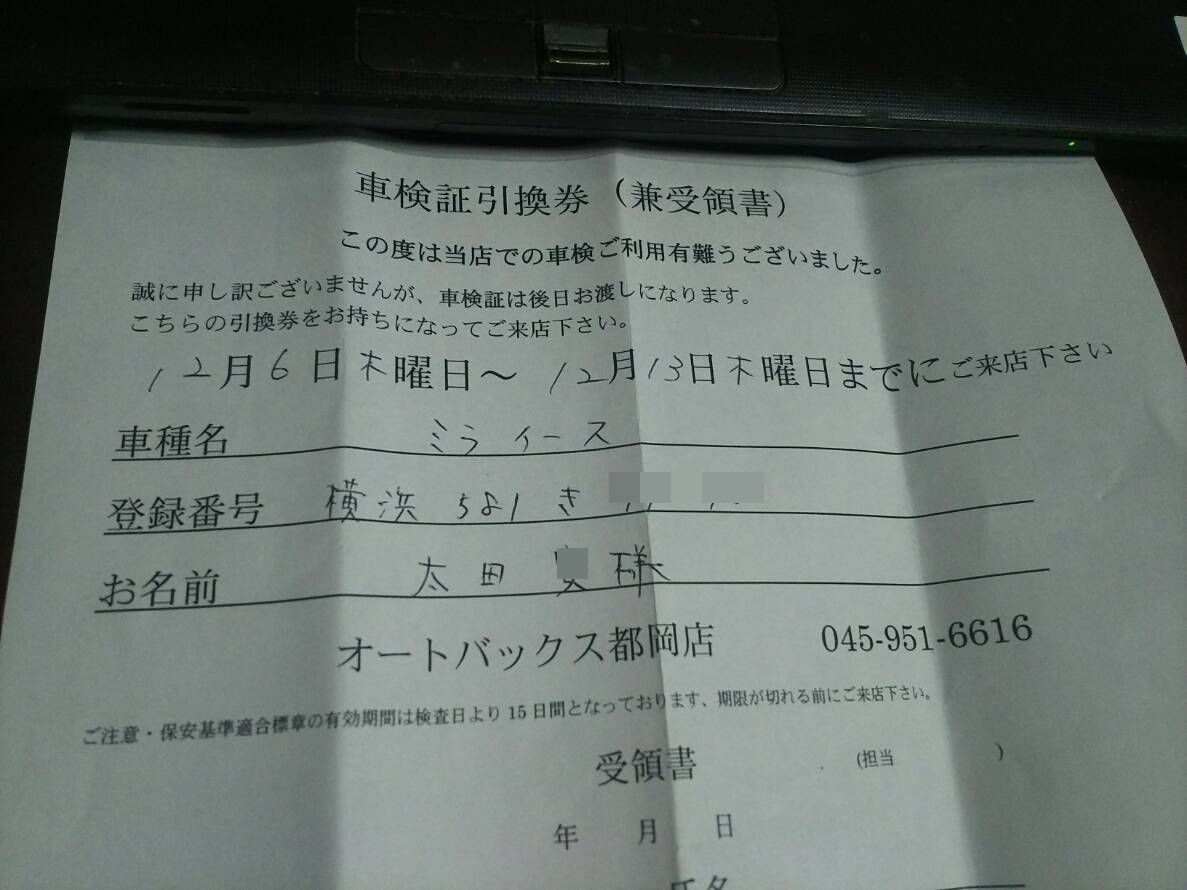 車検証引換券（兼受領書）
この度は当店での車検ご利用有難うございました。
誠に申し訳ございませんが、車検証は後日お渡しになります。
こちらの引換券をお持ちになってご来店下さい。
12月6日木曜日～12月13日木曜日までにご来店下さい
車種名 ミライース
登録番号 横浜 581 き
お名前 太田 様
オートバックス都岡店 045-951-6616
ご注意・保安基準適合標章の有効期間は検査日より15日間となっております、期限が切れる前にご来店下さい。
受領書 (担当 )
年 月 日
氏名